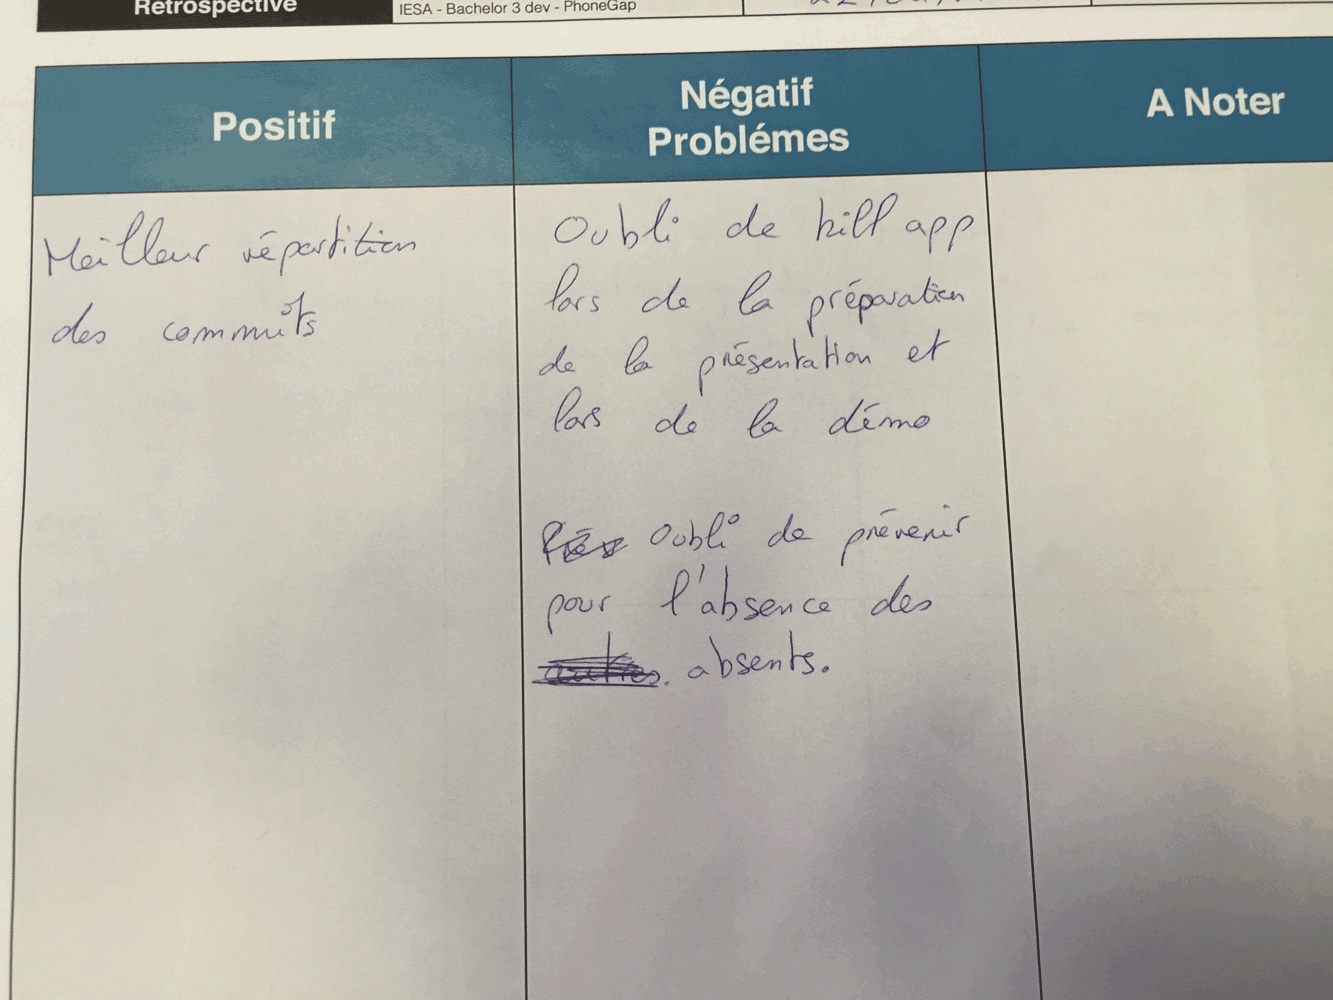 Rétrospective
IESA - Bachelor 3 dev - PhoneGap
Positif
Négatif
Problémes
A Noter
Meilleur répartition
des commits
Oubli de kill app
lors de la préparation
de la présentation et
lors de la démo
Oubli de prévenir
pour l'absence des
absents.